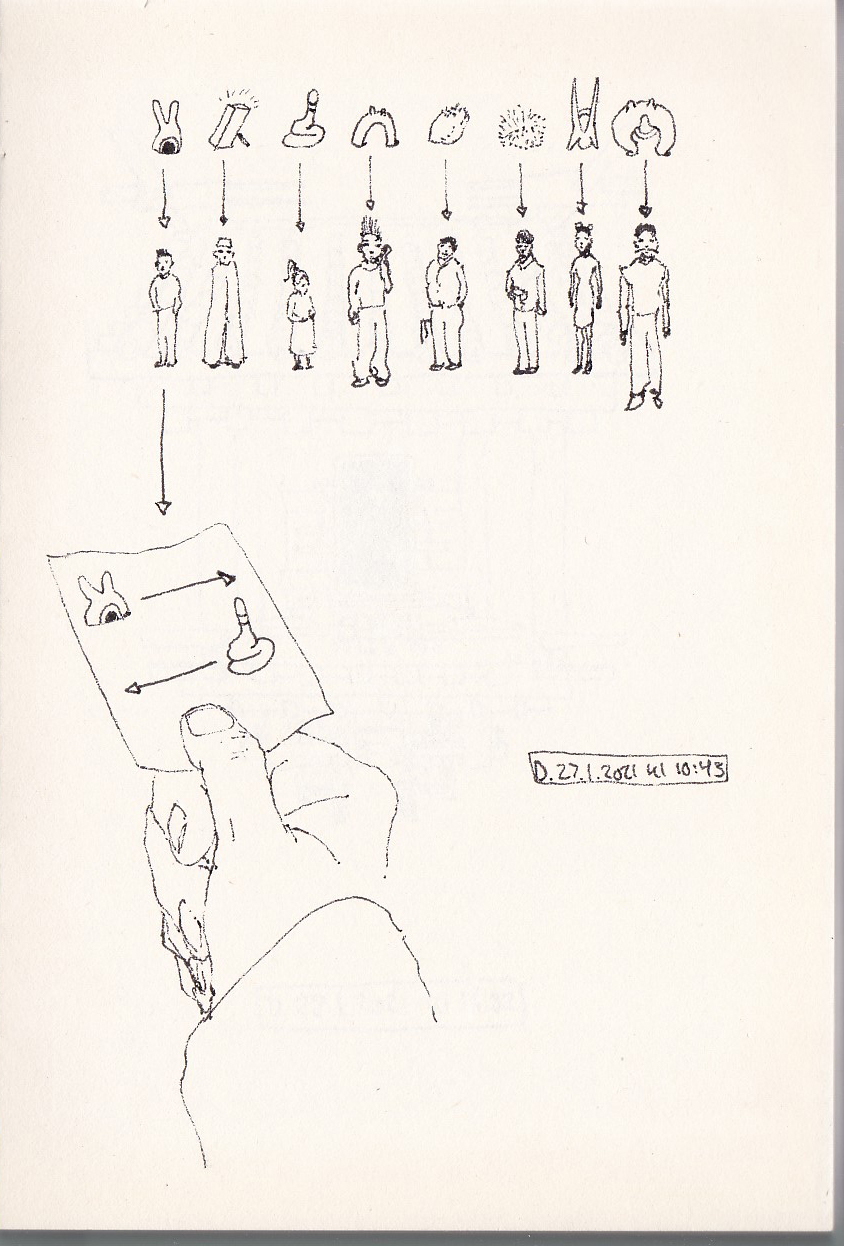 D. 27.1.2021 kl 10:43